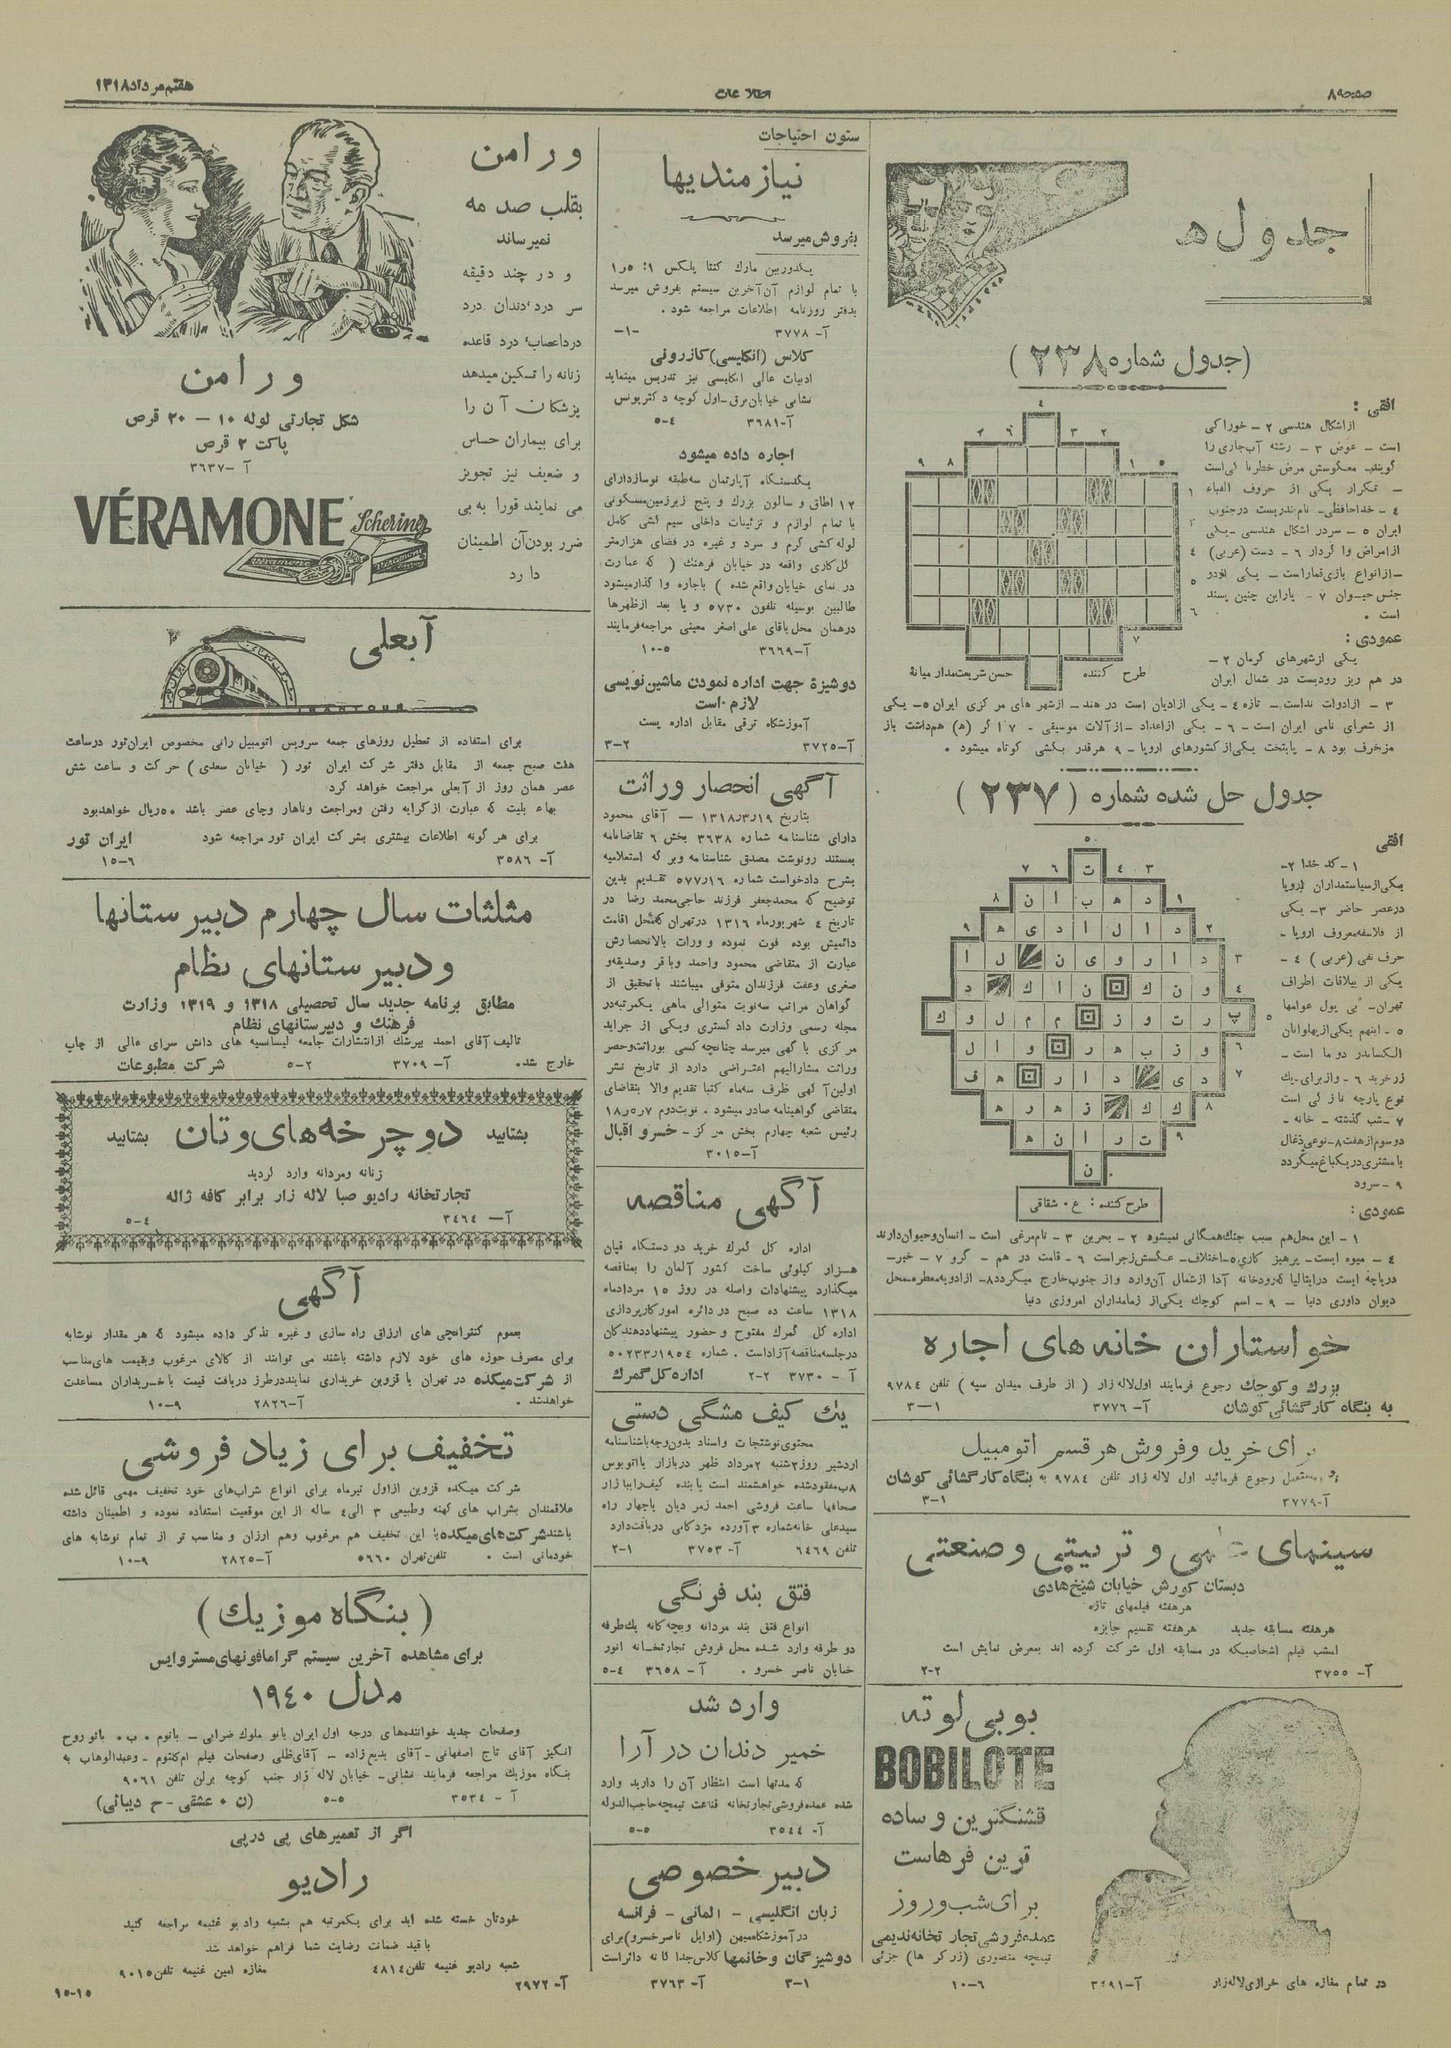 صفحه ۸
اطلاعات
هفتم مرداد ۱۳۱۸
جدول ها
(جدول شماره ۲۳۸)
افقی :
از اشکال هندسی ۲ - خوراکی
است - عوض ۳ - رشته آب جاری را
گویند معکوسش مرض خطرناکی است
- تکرار یکی از حروف الفباء
۴ - خداحافظی - نام بندریست در جنوب
ایران ۵ - سردر اشکال هندسی - یکی
از امراض واگردار ۶ - دست (عربی)
- از انواع بازی قمار است - یکی از دو
جنس حیوان ۷ - یاراین چنین پسند
است .
عمودی :
یکی از شهرهای کرمان ۲ -
در هم ریز رودیست در شمال ایران
۳ - از ادوات نداست - تازه ۴ - یکی از ادیان است در هند - از شهر های مرکزی ایران ۵ - یکی
از شعرای نامی ایران است - ۶ - یکی از اعداد - از آلات موسیقی - ۷ اگر (ه) هم داشت یاز
مزخرف بود ۸ - پایتخت یکی از کشورهای اروپا - ۹ هر قدر بکشی کوتاه میشود .
طرح کننده حسن شریعتمدار میانهٔ
جدول حل شده شماره (۲۳۷)
افقی
۱ - کد خدا ۲ -
یکی از سیاستمداران اروپا
در عصر حاضر ۳ - یکی
از فلاسفه معروف اروپا -
حرف نفی (عربی) ۴ -
یکی از ییلاقات اطراف
تهران - بی پول عوامها
۵ - اینهم یکی از پهلوانان
الکساندر دوما است -
زرخرید ۶ - واز برای - یک
نوع پارچه نازکی است
۷ - شب گذشته - خانه -
دوسوم از هفت ۸ - نوعی ذغال
با مشتری در یک باغ میگردد
۹ - سرود
عمودی :
طرح کننده : ع . شقاقی
۱ - این محل هم سبب جنک همگانی نمیشود ۲ - بحرین ۳ - نام مرغی است - انسان و حیوان دارند
۴ - میوه ایست - پرهیز کاری ۵ - اختلاف - عکسش زجر است ۶ - قامت در هم - گرو ۷ - خبر -
دریاچهٔ ایست در ایتالیا که رودخانه آدا از شمال آن وارد و از جنوب خارج میگردد ۸ - از ادویه معطره - محل
دیوان داوری دنیا - ۹ - اسم کوچک یکی از زمامداران امروزی دنیا
خواستاران خانه های اجاره
بزرک و کوچک رجوع فرمایند اول لاله زار ( از طرف میدان سپه ) تلفن ۹۷۸۴
به بنگاه کارگشائی کوشان آ - ۳۷۷۶ ۱-۳
برای خرید و فروش هر قسم اتومبیل
رجوع فرمائید اول لاله زار تلفن ۹۷۸۴ به بنگاه کارگشائی کوشان
آ - ۳۷۷۹ ۱-۳
سینمای علمی و تربیتی و صنعتی
دبستان کورش خیابان شیخ هادی
هر هفته فیلمهای تازه
هر هفته مسابقه جدید هر هفته تقسیم جایزه
امشب فیلم اشخاصیکه در مسابقه اول شرکت کرده اند بمعرض نمایش است
آ - ۳۷۵۵ ۲-۲
بوبی لوته
BOBILOTE
قشنگترین و ساده
ترین فرهاست
برای شب و روز
عمده فروشی تجارتخانه ندیمی
تیمچه منصوری (زرگر ها) جزئی
در تمام مغازه های خرازی لاله زار ۶-۱۰
ستون احتیاجات
نیازمندیها
بفروش میرسد
یکدوربین مارک کنتا پلکس ۱: ۱٫۵
با تمام لوازم آن آخرین سیستم بفروش میرسد
بدفتر روزنامه اطلاعات مراجعه شود .
آ - ۳۷۷۸ -۱-
کلاس (انگلیسی) کازرونی
ادبیات عالی انگلیسی نیز تدریس مینماید
نشانی خیابان برق - اول کوچه دکتر یونس
آ - ۳۶۸۱ ۴-۵
اجاره داده میشود
یکدستگاه آپارتمان سه طبقه نوساز دارای
۱۲ اطاق و سالون بزرک و پنج زیرزمین مسکونی
با تمام لوازم و تزئینات داخلی سیم کشی کامل
لوله کشی گرم و سرد و غیره در فضای هزار متر
گل کاری واقعه در خیابان فرهنک ( که عمارت
در نمای خیابان واقع شده ) باجاره واگذار میشود
طالبین بوسیله تلفون ۵۷۳۰ و یا بعد از ظهرها
در همان محل باقای علی اصغر معینی مراجعه فرمایند
آ - ۳۶۶۹ ۵-۱۰
دوشیزهٔ جهت اداره نمودن ماشین نویسی
لازم است
آموزشگاه ترقی مقابل اداره پست
آ - ۳۷۲۵ ۲-۳
آگهی انحصار وراثت
بتاریخ ۱۹ر۳ر۱۳۱۸ - آقای محمود
دارای شناسنامه شماره ۳۶۳۸ بخش ۶ تقاضانامه
بمستند رونوشت مصدق شناسنامه و برگه استعلامیه
بشرح دادخواست شماره ۵۷۷ر۱۶ تقدیم بدین
توضیح که محمدجعفر فرزند حاجی محمد رضا در
تاریخ ۴ شهریورماه ۱۳۱۶ در تهران که محل اقامت
دائمیش بوده فوت نموده و وراث بالانحصارش
عبارت از متقاضی محمود و احمد و باقر و صدیقه و
صغری و عفت فرزندان متوفی میباشند با تحقیق از
گواهان مراتب سه نوبت متوالی ماهی یکمرتبه در
مجله رسمی وزارت دادگستری و یکی از جراید
مرکزی باگهی میرسد چنانچه کسی بوراثت و حصر
وراثت مشارالیهم اعتراضی دارد از تاریخ نشر
اولین آگهی ظرف سه ماه کتبا تقدیم والا بتقاضای
متقاضی گواهینامه صادر میشود . نوبت دوم ۷ر۵ر۱۸
رئیس شعبه چهارم بخش مرکز - خسرو اقبال
آ - ۳۰۱۵
آگهی مناقصه
اداره کل گمرک خرید دو دستگاه قپان
هزار کیلوئی ساخت کشور آلمان را بمناقصه
میگذارد پیشنهادات واصله در روز ۱۵ مرداد ماه
۱۳۱۸ ساعت ده صبح در دائره امور کارپردازی
اداره کل گمرک مفتوح و حضور پیشنهاد دهندگان
در جلسه مناقصه آزاد است . شماره ۵۰۲۳۳ر۱۹۵۴
آ - ۳۷۳۰ ۲-۲ اداره کل گمرک
یک کیف مشگی دستی
محتوی نوشتجات و اسناد بدون وجه باشناسنامه
اردشیر روز ۲ شنبه ۲ مرداد ظهر در بازار یا اتوبوس
۸ ب مفقود شده خواهشمند است یابنده کیف را ببازار
صحافها ساعت فروشی احمد زمردیان یا چهار راه
سیدعلی خانه شماره ۳ آورده مژدگانی دریافت دارد
تلفن ۶۴۶۹ آ - ۳۷۵۳ ۱-۲
فتق بند فرنگی
انواع فتق بند مردانه و بچه گانه یکطرفه
دو طرفه وارد شده محل فروش تجارتخانه انور
خیابان ناصر خسرو . آ - ۳۶۵۸ ۴-۵
وارد شد
خمیر دندان درآرا
که مدتها است انتظار آن را دارید وارد
شده عمده فروشی تجارتخانه قناعت تیمچه حاجب الدوله
آ - ۳۵۴۴ ۵-۵
دبیر خصوصی
زبان انگلیسی - المانی - فرانسه
در آموزشگاه میهن (اوایل ناصر خسرو) برای
دوشیزگان و خانمها کلاس جداگانه دائر است
آ - ۳۷۶۳ ۱-۳
ورامن
بقلب صدمه
نمیرساند
و در چند دقیقه
سر درد، دندان درد
درد اعصاب، درد قاعده
زنانه را تسکین میدهد
پزشکان آن را
برای بیماران حساس
و ضعیف نیز تجویز
می نمایند فورا به بی
ضرر بودن آن اطمینان
دارد
ورامن
شکل تجارتی لوله ۱۰ - ۲۰ قرص
پاکت ۲ قرص
آ - ۳۶۳۷
VÉRAMONE
Schering
آبعلی
IRANTOUR
برای استفاده از تعطیل روزهای جمعه سرویس اتومبیل رانی مخصوص ایران تور در ساعت
هفت صبح جمعه از مقابل دفتر شرکت ایران تور ( خیابان سعدی ) حرکت و ساعت شش
عصر همان روز از آبعلی مراجعت خواهد کرد
بهاء بلیت که عبارت از کرایه رفتن و مراجعت و ناهار و چای عصر باشد ۵۰ ریال خواهد بود
برای هر گونه اطلاعات بیشتری بشرکت ایران تور مراجعه شود ایران تور
آ - ۳۵۸۶ ۶-۱۵
مثلثات سال چهارم دبیرستانها
و دبیرستانهای نظام
مطابق برنامه جدید سال تحصیلی ۱۳۱۸ و ۱۳۱۹ وزارت
فرهنگ و دبیرستانهای نظام
تالیف آقای احمد بیرشک از انتشارات جامعه لیسانسیه های دانش سرای عالی از چاپ
خارج شد . آ - ۳۷۰۹ ۲-۵ شرکت مطبوعات
بشتابید دوچرخه های وتان بشتابید
زنانه و مردانه وارد گردید
تجارتخانه رادیو صبا لاله زار برابر کافه ژاله
آ - ۳۴۶۴ ۴-۵
آگهی
بعموم کنتراتچی های ارزاق راه سازی و غیره تذکر داده میشود که هر مقدار نوشابه
برای مصرف حوزه های خود لازم داشته باشند می توانند از کالای مرغوب و بقیمت های مناسب
از شرکت میکده در تهران یا قزوین خریداری نمایند در طرز دریافت قیمت با خریداران مساعدت
خواهد شد . آ - ۲۸۲۶ ۹-۱۰
تخفیف برای زیاد فروشی
شرکت میکده قزوین از اول تیرماه برای انواع شرابهای خود تخفیف مهمی قائل شده
علاقمندان بشراب های کهنه و طبیعی ۳ الی ۴ ساله از این موقعیت استفاده نموده و اطمینان داشته
باشند شرکت های میکده با این تخفیف هم مرغوب و هم ارزان و مناسب تر از تمام نوشابه های
خودمانی است . تلفن تهران ۵۶۶۰ آ - ۲۸۲۵ ۹-۱۰
( بنگاه موزیک )
برای مشاهده آخرین سیستم گرامافونهای مستر وایس
مدل ۱۹۴۰
وصفحات جدید خواننده های درجه اول ایران بانو ملوک ضرابی - بانو م . ب . بانو روح
انگیز آقای تاج اصفهانی - آقای بدیع زاده - آقای ظلی وصفحات فیلم ام کلثوم - وعبدالوهاب به
بنگاه موزیک مراجعه فرمایند نشانی - خیابان لاله زار جنب کوچه برلن تلفن ۹۰۶۱
آ - ۳۵۳۴ ۵-۵ (ن . عشقی - ح دیبائی)
اگر از تعمیرهای پی در پی
رادیو
خودتان خسته شده اید برای یکمرتبه هم بشعبه رادیو غنیمه مراجعه کنید
با قید ضمانت رضایت شما فراهم خواهد شد
شعبه رادیو غنیمه تلفن ۴۸۱۴ مغازه امین غنیمه تلفن ۹۰۱۵
آ - ۲۹۷۲ ۱۵-۱۵